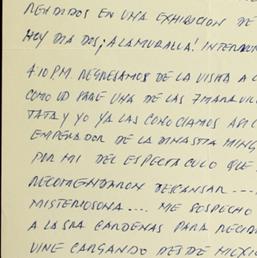 RENDIDOS EN UNA EXHIBICION DE
HOY DIA DOS ¡A LA MURALLA! INTERRUM
4:10 P.M. REGRESAMOS DE LA VISITA A L
COMO UD PARE UNA DE LAS 7 MARAVILL
TATA Y YO YA LAS CONOCIAMOS APLIC
EMPERADOR DE LA DINASTIA MING
POR MI DEL ESPECTACULO QUE
RECOMENDARON DESCANSAR ----
MISTERIOSONA.... ME SOSPECHO
A LA SRA CARDENAS PARA RECIB
VINE CARGANDO DESDE MEXIC